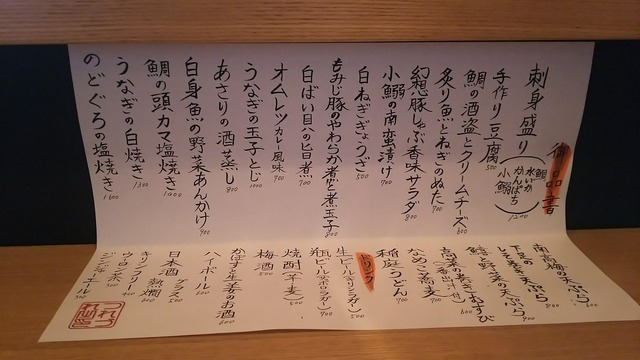 御品書
刺身盛り(鯛 水いか かんぱち 小鰯) 1200
手作り豆腐 500
鯛の酒盗とクリームチーズ 600
炙り魚とねぎのぬた 700
幻想豚しゃぶ香味サラダ 800
小鰯の南蛮漬け 700
白ねぎぎょうざ 500
もみじ豚のやわらか煮と煮玉子 800
白ばい貝の旨煮 700
オムレツカレー風味 700
うなぎの玉子とじ 1000
あさりの酒蒸し 800
白身魚の野菜あんかけ 900
鯛の頭カマ塩焼き 1000
うなぎの白焼き 1300
のどぐろの塩焼き 1600
南高梅の天ぷら
の天ぷら 900
鱈と野菜の天ぷら
むすび 600
なめこ蕎麦 700
稲庭うどん 700
ドリンク
生ビール 500
瓶ビール 700
焼酎(芋・麦) 500
梅酒 500
かぼすと生姜のお酒 600
ハイボール 600
日本酒 グラス 500
熱燗 600
キリンフリー 400
ウーロン茶 300
ジンジャーエール 300